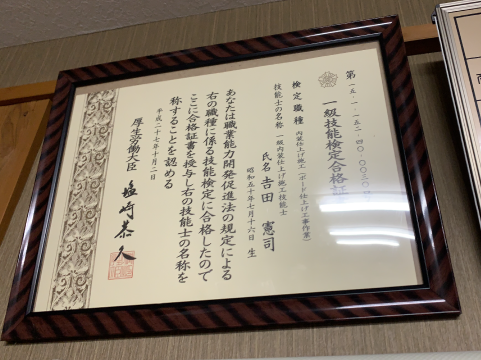 第一五-一-一五二-四〇-〇〇三〇
一級技能検定合格証
検定職種 内装仕上げ施工(ボード仕上げ工事作業)
技能士の名称 一級内装仕上げ施工技能士
氏名 吉田 憲司
昭和五十年七月十六日 生
あなたは職業能力開発促進法の規定による
右の職種に係る技能検定に合格したので
ここに合格証書を授与し右の技能士の名称を
称することを認める
平成二十七年十月二日
厚生労働大臣 塩崎恭久